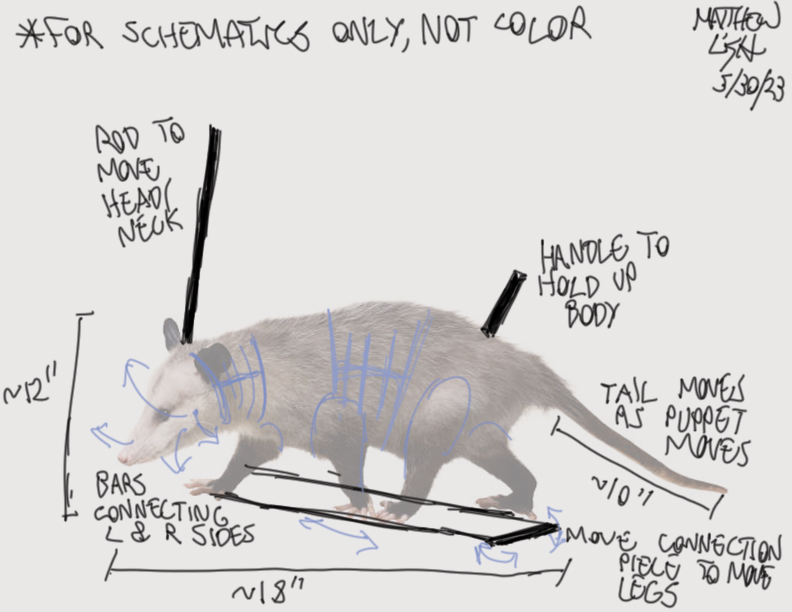 *FOR SCHEMATICS ONLY, NOT COLOR
MATTHEW
5/30/23
ROD TO
MOVE
HEAD/
NECK
HANDLE TO
HOLD UP
BODY
~12"
TAIL MOVES
AS PUPPET
MOVES
~10"
BARS
CONNECTING
L & R SIDES
MOVE CONNECTION
PIECE TO MOVE
LEGS
~18"